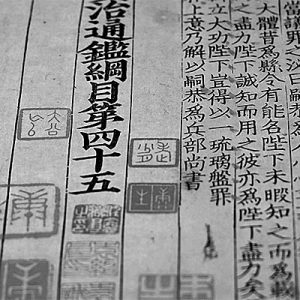 當議罪之泌曰嗣恭
大體昔爲縣令有能名陛下未暇知之而爲載
之盡力陛下誠知而用之彼亦爲陛下盡力矣
立大功陛下豈得以一琉璃盤罪
上意乃解以嗣恭爲兵部尚書
治通鑑綱目第四十五